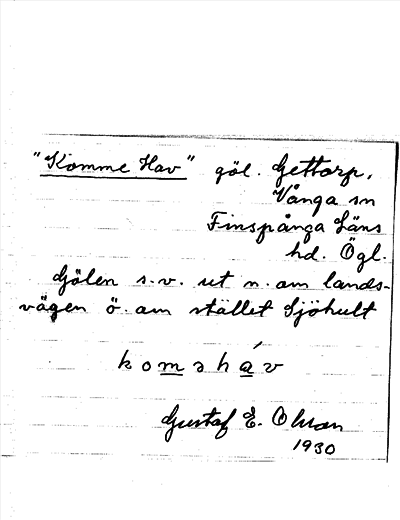 "Komme Hav" göl. Gettorp,
Vånga sn
Finspånga Läns
hd. Ögl.
Gölen s.v. ut n. om lands-
vägen ö. om stället Sjöhult
koməháv
Gustaf E. Olson
1930